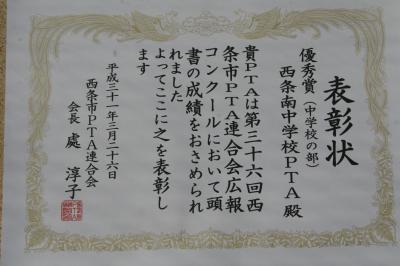 表彰状
優秀賞（中学校の部）
西条南中学校PTA殿
貴PTAは第三十六回西
条市PTA連合会広報
コンクールにおいて頭
書の成績をおさめられ
れました
よってここに之を表彰し
ます
平成三十一年三月二十六日
西条市PTA連合会
会長 處 淳子